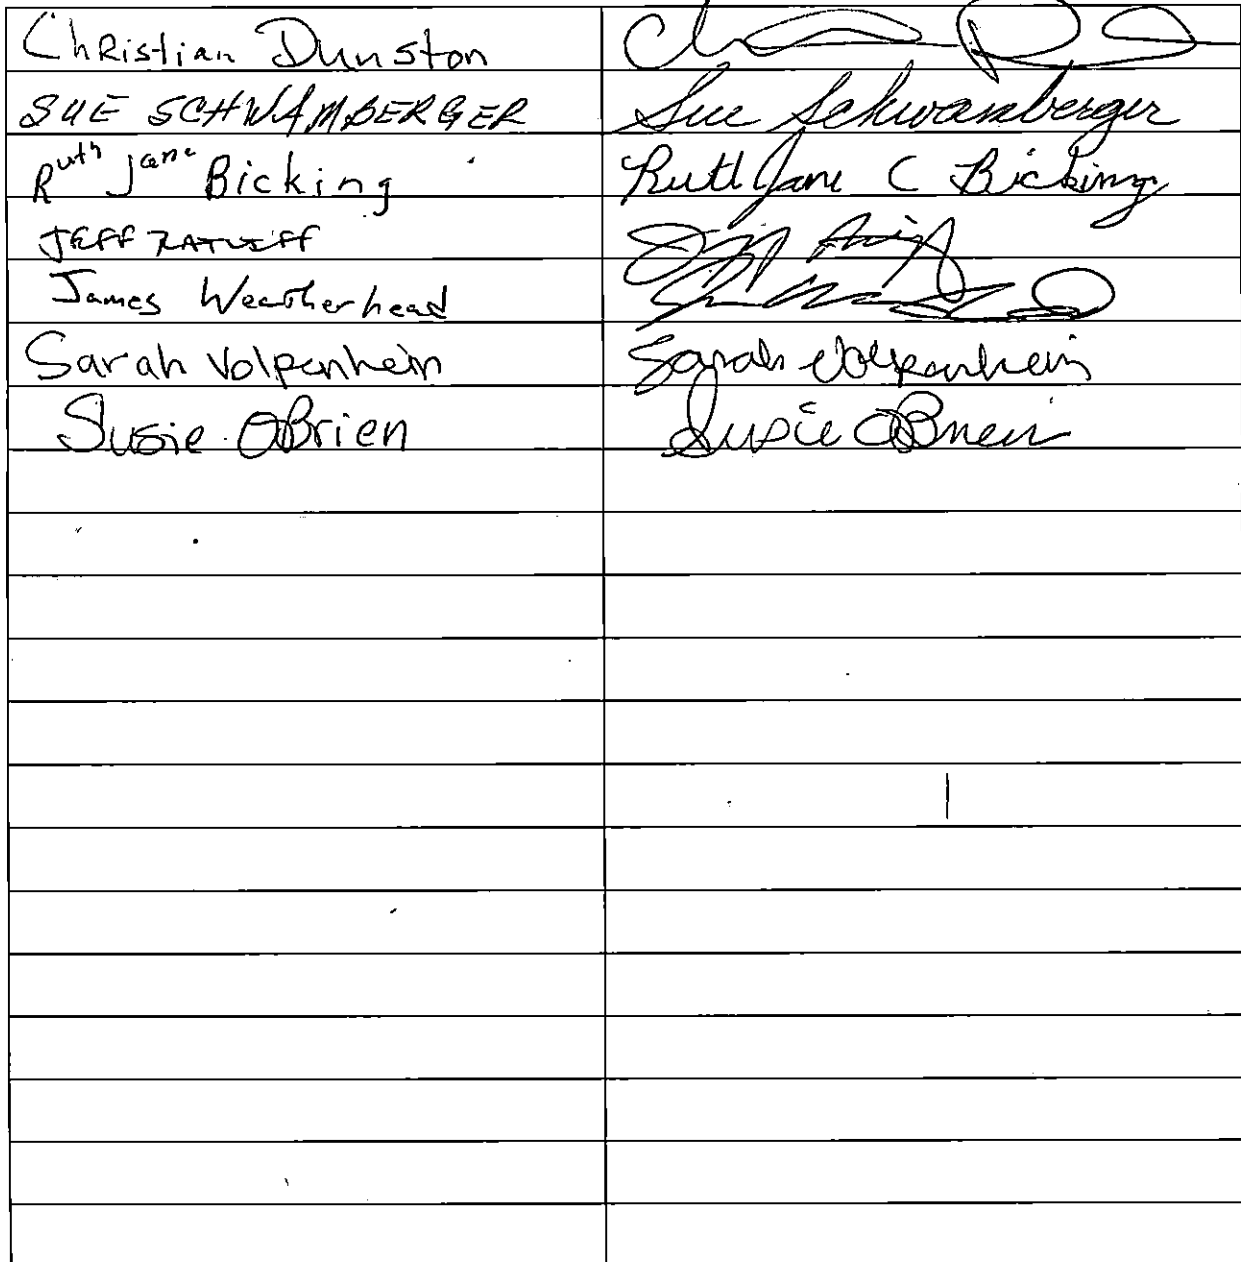 Christian Dunston
SUE SCHWAMBERGER Sue Schwamberger
Ruth Jane Bicking Ruth Jane C Bicking
JEFF RATLIFF
James Weatherhead
Sarah Volpenhein Sarah Volpenhein
Susie OBrien Susie OBrien